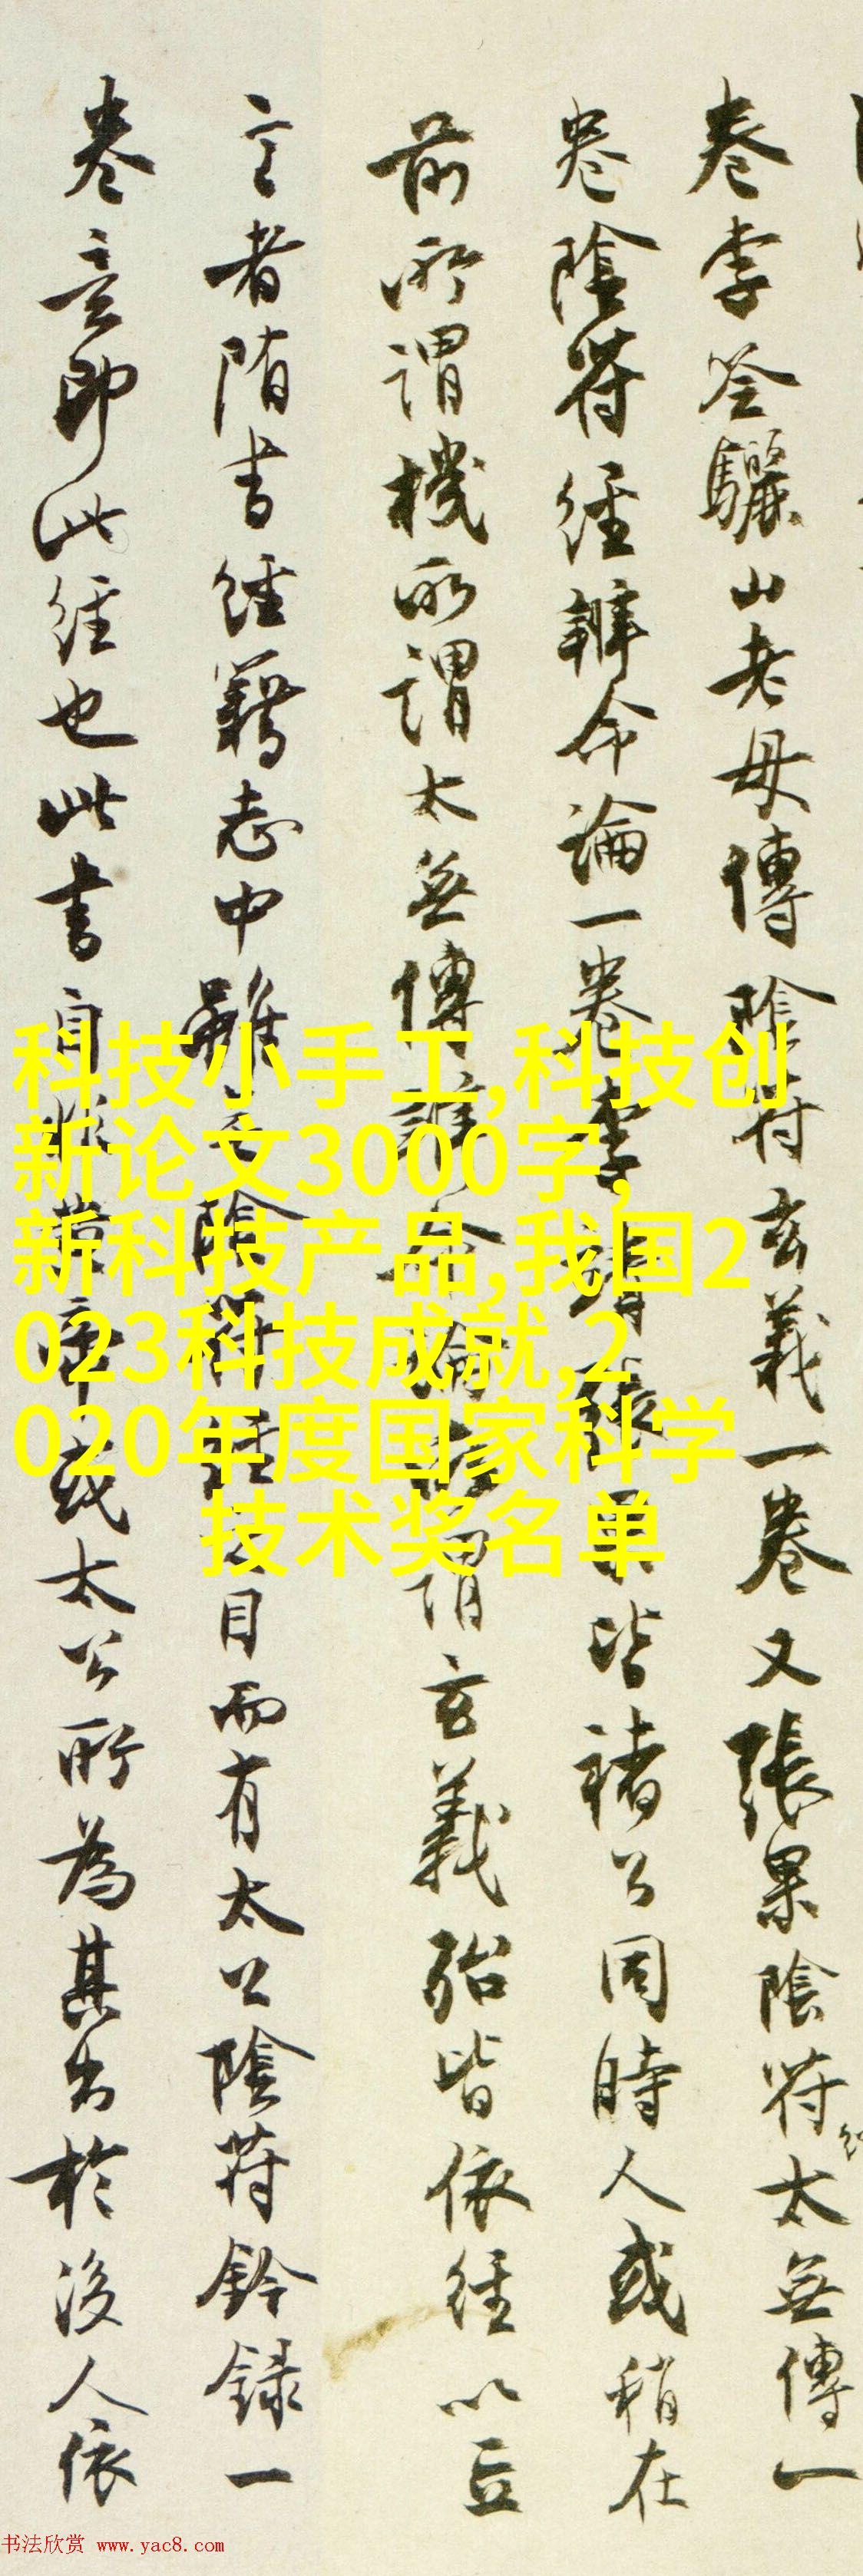 卷李筌驪山老母傳陰符玄義一卷又張果陰符太無傳一
卷陰符經辨命論一卷李靖張果皆褚公同時人或稍在
前所謂機所謂太無傳辨命論所謂玄義殆皆依經以立
言者隋書經籍志中雖無陰符經之目而有太公陰符鈐錄一
卷意即此經也此書自非黃帝或太公所為其出於後人依
科技小手工,科技创
新论文3000字,
新科技产品,我国2
023科技成就,2
020年度国家科学
技术奖名单
书法欣赏 www.yac8.com